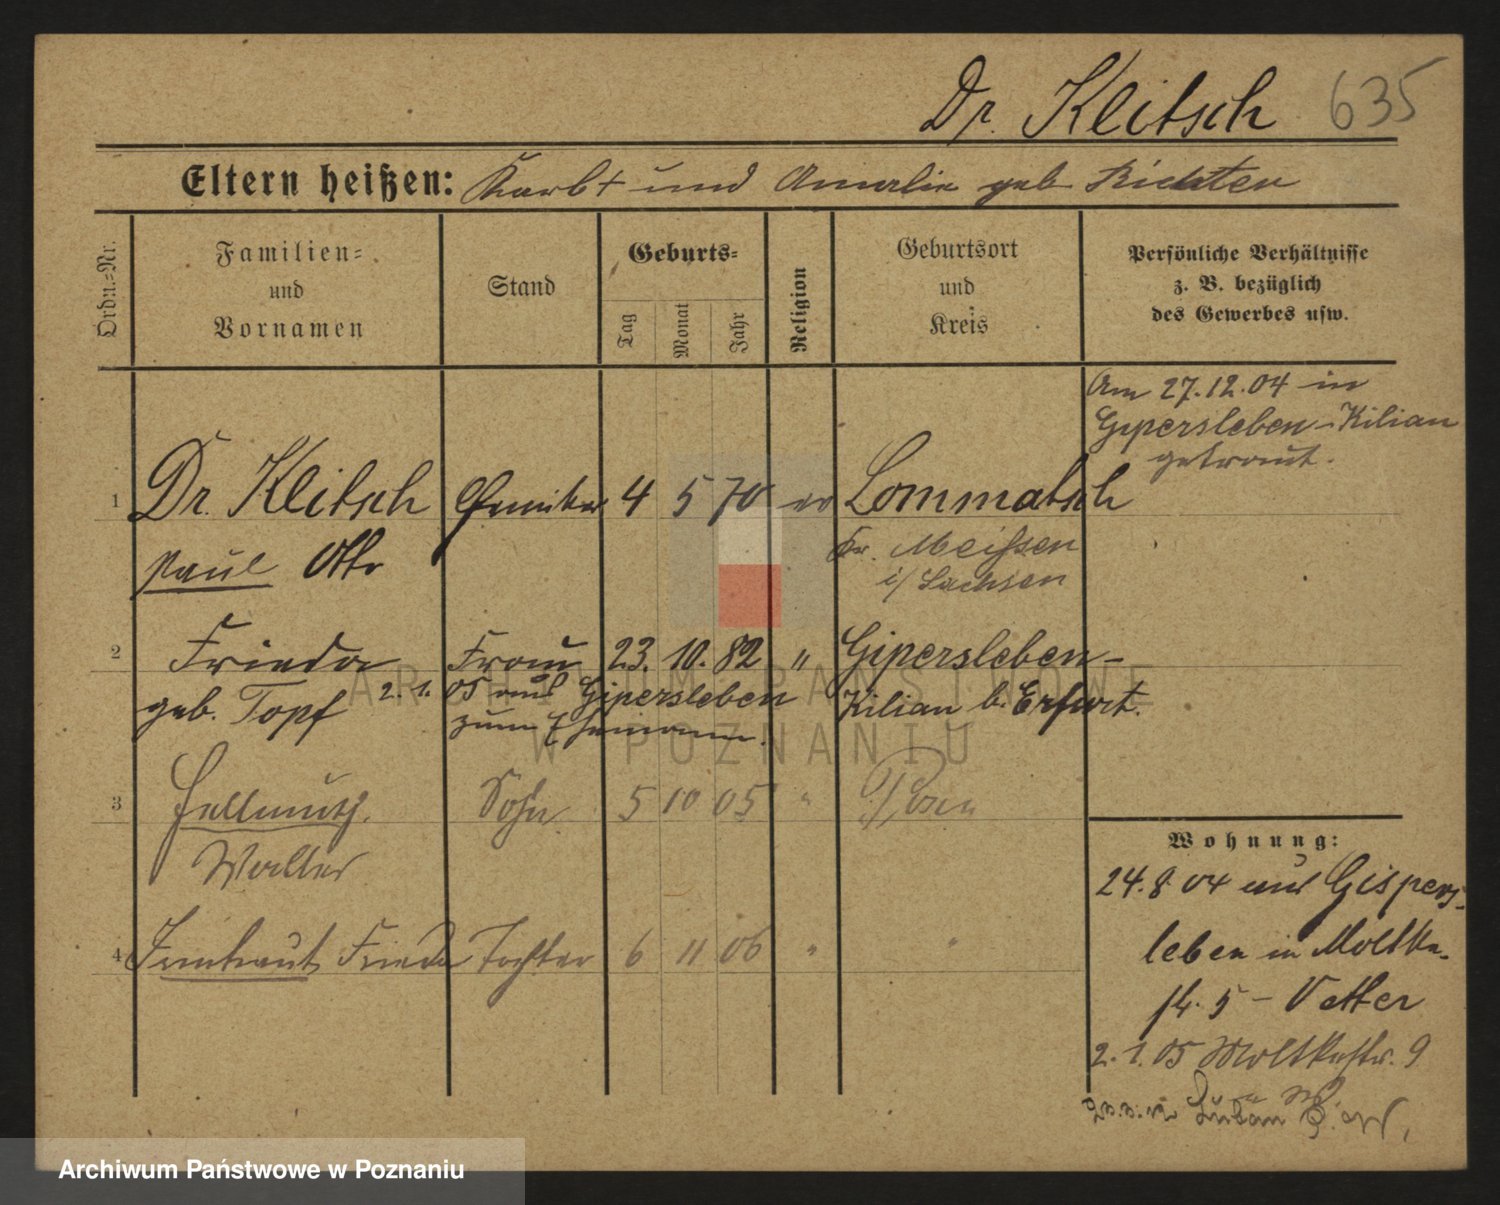 Dr. Klitsch 635
Eltern heißen: Karl + und Amalie geb Richter
Ordn.-Nr.
Familien-
und
Vornamen
Stand
Geburts-
Tag
Monat
Jahr
Religion
Geburtsort
und
Kreis
Persönliche Verhältnisse
z. B. bezüglich
des Gewerbes usw.
Am 27.12.04 in
Gipersleben-Kilian
getraut.
1 Dr. Klitsch Chemiker 4 5 70 ev Lommatsch
Paul Otto Kr. Meißen
i/ Sachsen
2 Frieda Frau 23. 10. 82 " Gipersleben-
geb. Topf 2.1. 05 aus Gipersleben Kilian b. Erfurt.
zum Ehemann.
3 Hellmuth. Sohn 5 10 05 " Posen
Walter
4 Irmtraut Frieda Tochter 6 11 06 " "
Wohnung:
24.8.04 aus Gispers-
leben in Moltke-
str. 5 - Vetter
2.1.05 Moltkestr. 9
ARCHIWUM PAŃSTWOWE
W POZNANIU
Archiwum Państwowe w Poznaniu